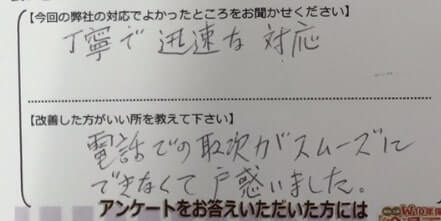 【今回の弊社の対応でよかったところをお聞かせください】
丁寧で 迅速な 対応
【改善した方がいい所を教えて下さい】
電話での取次がスムーズに
できなくて戸惑いました。
アンケートをお答えいただいた方には